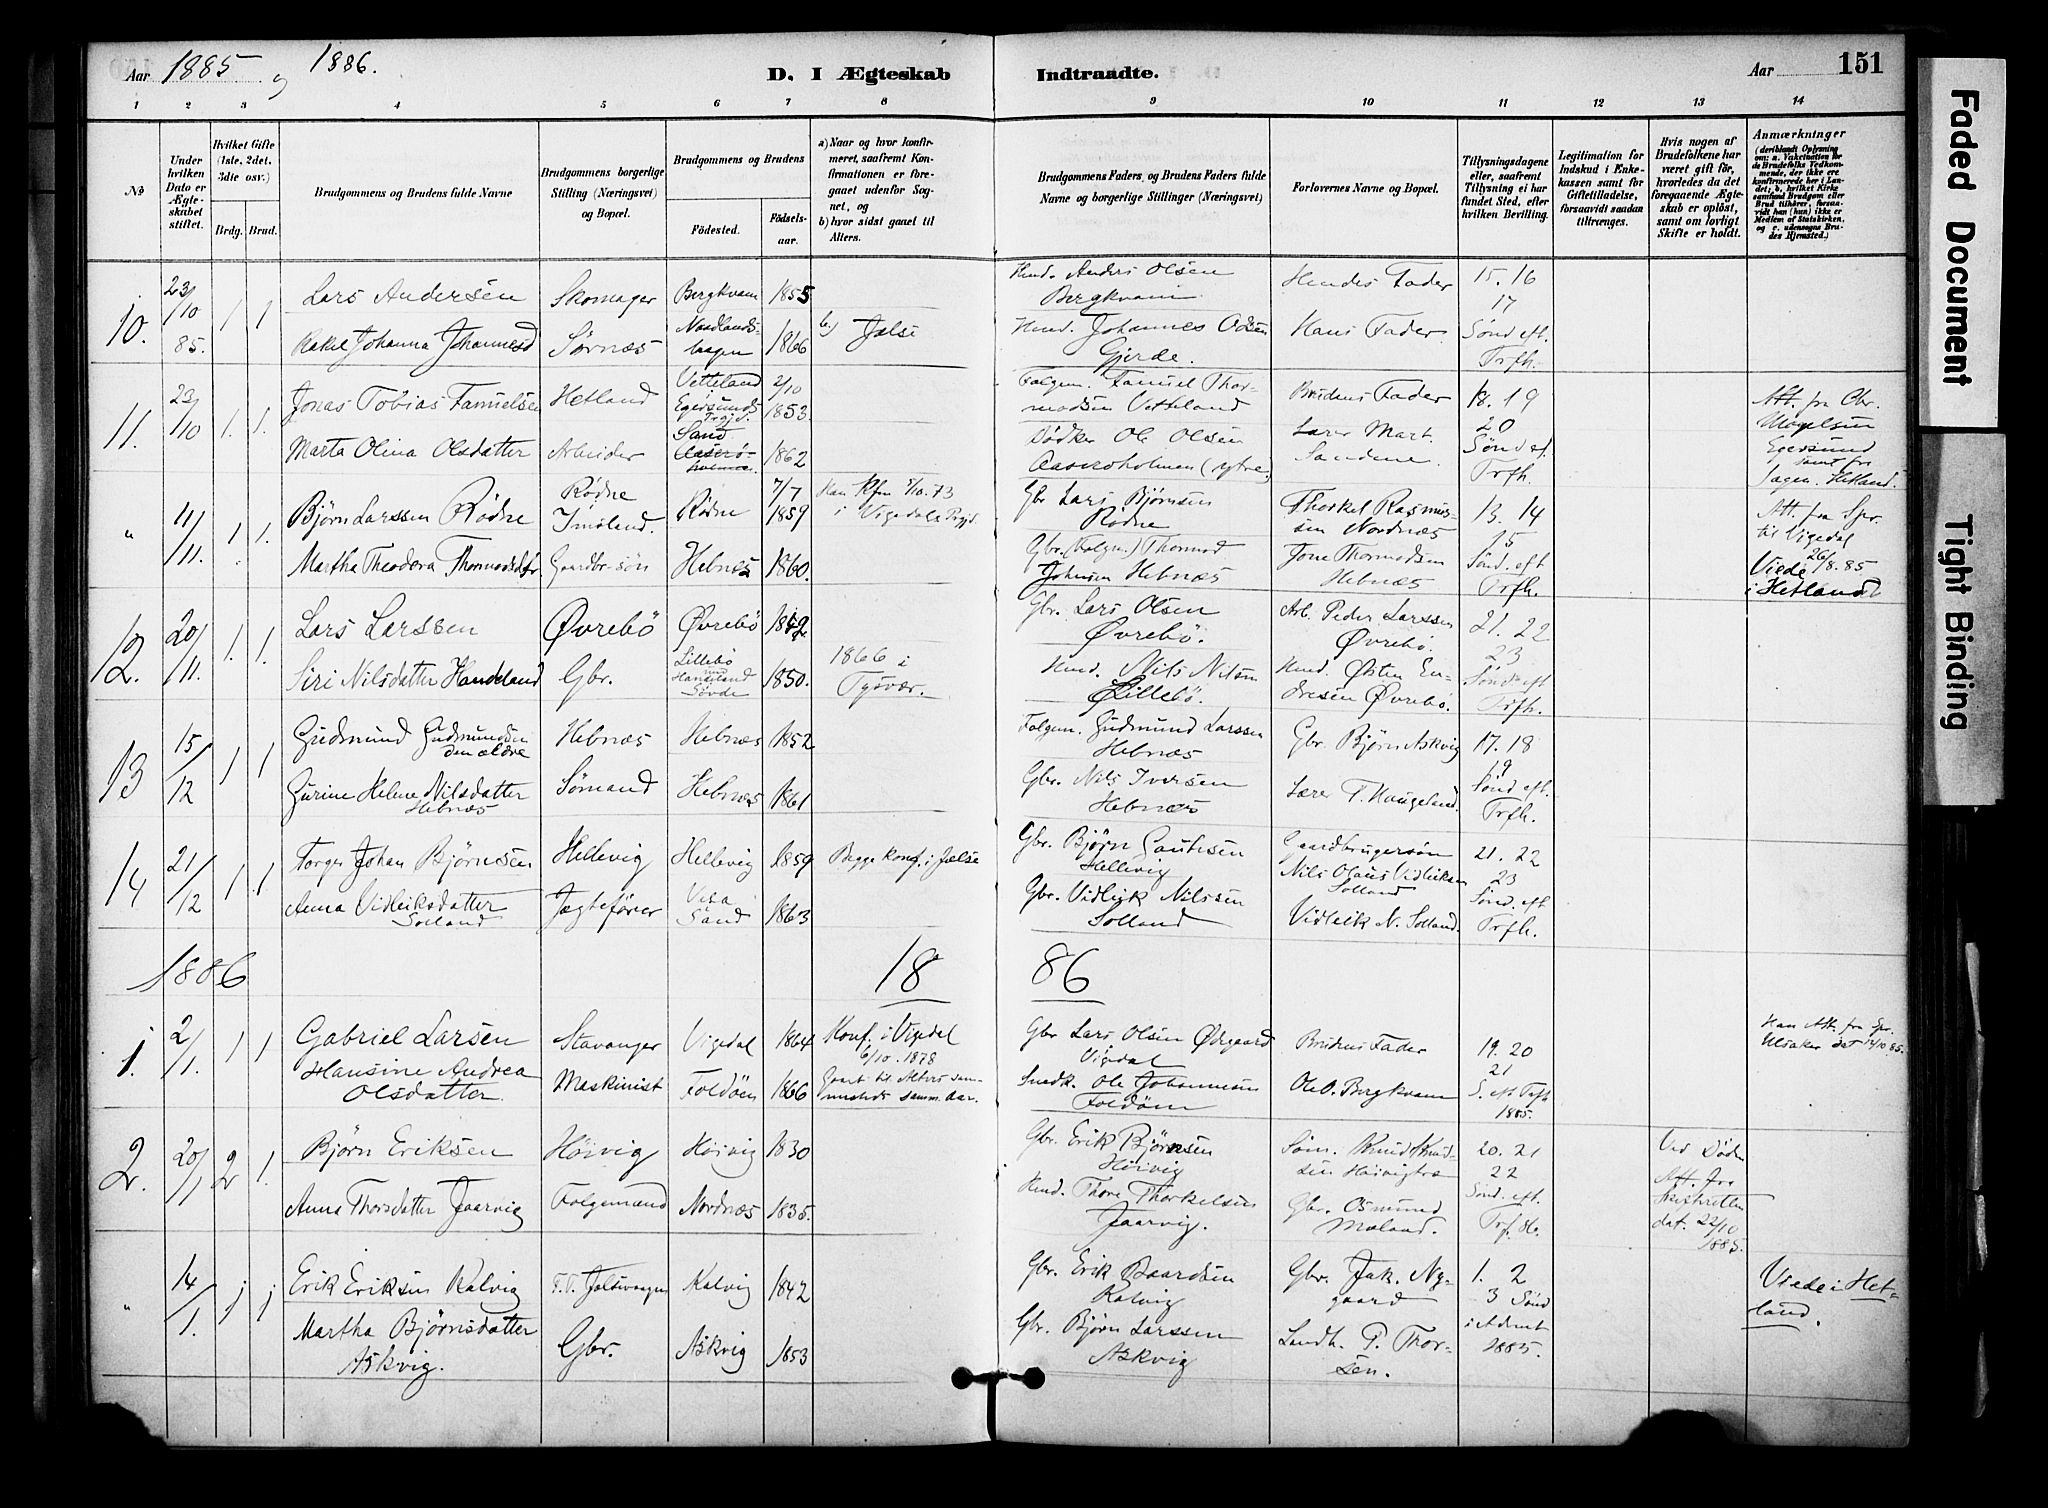 Aar 1885 og 1886.
D. I Ægteskab Indtraadte.
Aar 151
1 2 3 4 5 6 7 8 9 10 11 12 13 14
№
Under hvilken Dato er Ægteskabet stiftet.
Hvilket Gifte (1ste, 2det, 3die osv.)
Brdg. Brud.
Brudgommens og Brudens fulde Navne
Brudgommens borgerlige Stilling (Næringsvei) og Bopæl.
Brudgommens og Brudens
Födested.
Födselsaar.
a) Naar og hvor konfirmeret, saafremt Konfirmationen er foregaaet udenfor Sognet, og
b) hvor sidst gaaet til Alters.
Brudgommens Faders og Brudens Faders fulde Navne og borgerlige Stillinger (Næringsvei)
Forlovernes Navne og Bopæl.
Tillysningsdagene eller, saafremt Tillysning ei har fundet Sted, efter hvilken Bevilling.
Legitimation for Indskud i Enkekassen samt for Giftetilladelse, forsaavidt saadan tiltrænges.
Hvis nogen af Brudefolkene har været gift før, hvorledes da det foregaaende Ægteskab er oplöst, samt om lovligt Skifte er holdt.
Anmærkninger
10. 23/10 85. 1 1
Lars Andersen
Skomager
Bergkvam
1855
b) Jalse
Hmd. Anders Olsen
Bergkvam
Hendes Fader
15. 16
17
Rakel Johanna Johannesd
Sørnæs
1866
Hmd. Johannes Olsen
Gjerde.
Hans Fader
Sønd eft.
Trfh.
11. 23/10 1. 1.
Jonas Tobias Samuelsen
Hetland
Vetteland
Egersunds
2/10
1853
Folgm. Samuel Thormodsen Vetteland
Brudens Fader
18. 19
20
Att. fra
Egersund
samt fra
Hetland.
Marta Olina Olsdatter
Arbeider
Sand
1862
Bødker Ole Olsen
Sønd ef.
Trfh.
" 11/11. 1. 1.
Björn Larssen Rødne
Rødne
Imsland.
Rødne
7/7
1859
i Vigedals Prgjd.
Gbr Lars Bjørnsen
Rødne
Thorkel Rasmussen Nordnæs
13. 14
15
Att. fra Spr.
til Vigedal
Martha Theodora Thormodsdtr.
Gaardbr-søn
Hebnes
1860.
Gbr. (Folgm.) Thormod
Johnsen Hebnæs
Jone Thormodsen
Hebnæs
Sønd. eft
Trfh.
Viede 26/8. 85
i Hetland
12. 20/11. 1. 1.
Lars Larssen
Øvrebö
Øvrebö
Gbr. Lars Olsen
Øvrebö.
Arb. Peder Larssen
Øvrebö.
21. 22
23
Siri Nilsdatter Handeland
Gbr.
Lillebö
Søvde
1850.
1866 i
Tysvær.
Hmd. Nils Nilsen
Lillebö.
Hmd. Østen Endresen Øvrebö.
Sønd eft
Trfh.
13 15/12 1 1
Gudmund Gudmundsen
den ældre
Hebnæs
Hebnæs
1852
Folgem. Gudmund Larssen
Hebnæs
Gbr. Bjørn Askvig
17. 18
19
Gurine Helene Nilsdatter
Hebnæs
Sømand
Hebnæs
1861
Gbr. Nils Iversen
Hebnæs
Lærer T. Haugeland.
Sønd eft.
Trfh.
14 21/12 1 1
Torger Johan Bjørnsen
Hellevig
Hellevig
1859
Begge konf. i Jælse
Gbr. Bjørn Gautesen
Hellevig
Gaardbrugersøn
Nils Olaus Vidleiksen
Solland
21. 22
23
Anna Vidleiksdatter
Solland
Jægtefører
Sand
1863
Gbr. Vidleik Nilssen
Solland
Vidleik N. Solland.
Sønd. eft
Trfh.
1886 18 86
1. 2/1. 1 1
Gabriel Larsen
Stavanger
Vigedal
1864
Konf. i Vigedal
6/10. 1878
Gbr Lars Olsen Ødegaard
Vigedal
Brudens Fader
19. 20
21
Hansine Andrea
Olsdatter.
Maskinist
Foldöen
1866
Snedk. Ole Johannesen
Foldöen
Ole O. Bergkvam
1885.
2. 20/1 2 1.
Bjørn Eriksen
Höivig
Höivig
1830
Gbr. Erik Bjørnsen
Höivig
Søm. Knud Knudsen
20. 21
22
Ved Døden
Att. fra
Skifteretten
dat. 22/10
1885.
Anna Thorsdatter Jaarvig
Folgemand
Nordnæs
1835.
Hmd. Thore Thorkelsen
Jaarvig.
Gbr. Osmund
Meland.
Sønd. eft.
" 14/1. 1 1
Erik Eriksen Kalvig
Kalvig
1842
Gbr. Erik Baardsen
Kalvig
Gbr. Jak. Nygaard
1. 2
3 Sønd
i Advent
1885.
Viede i Hetland.
Martha Bjørnsdatter
Askvig.
Gbr.
Askvig
1853
Gbr. Bjørn Larssen
Askvig
Landh. P. Thorsen.
Faded Document
Tight Binding